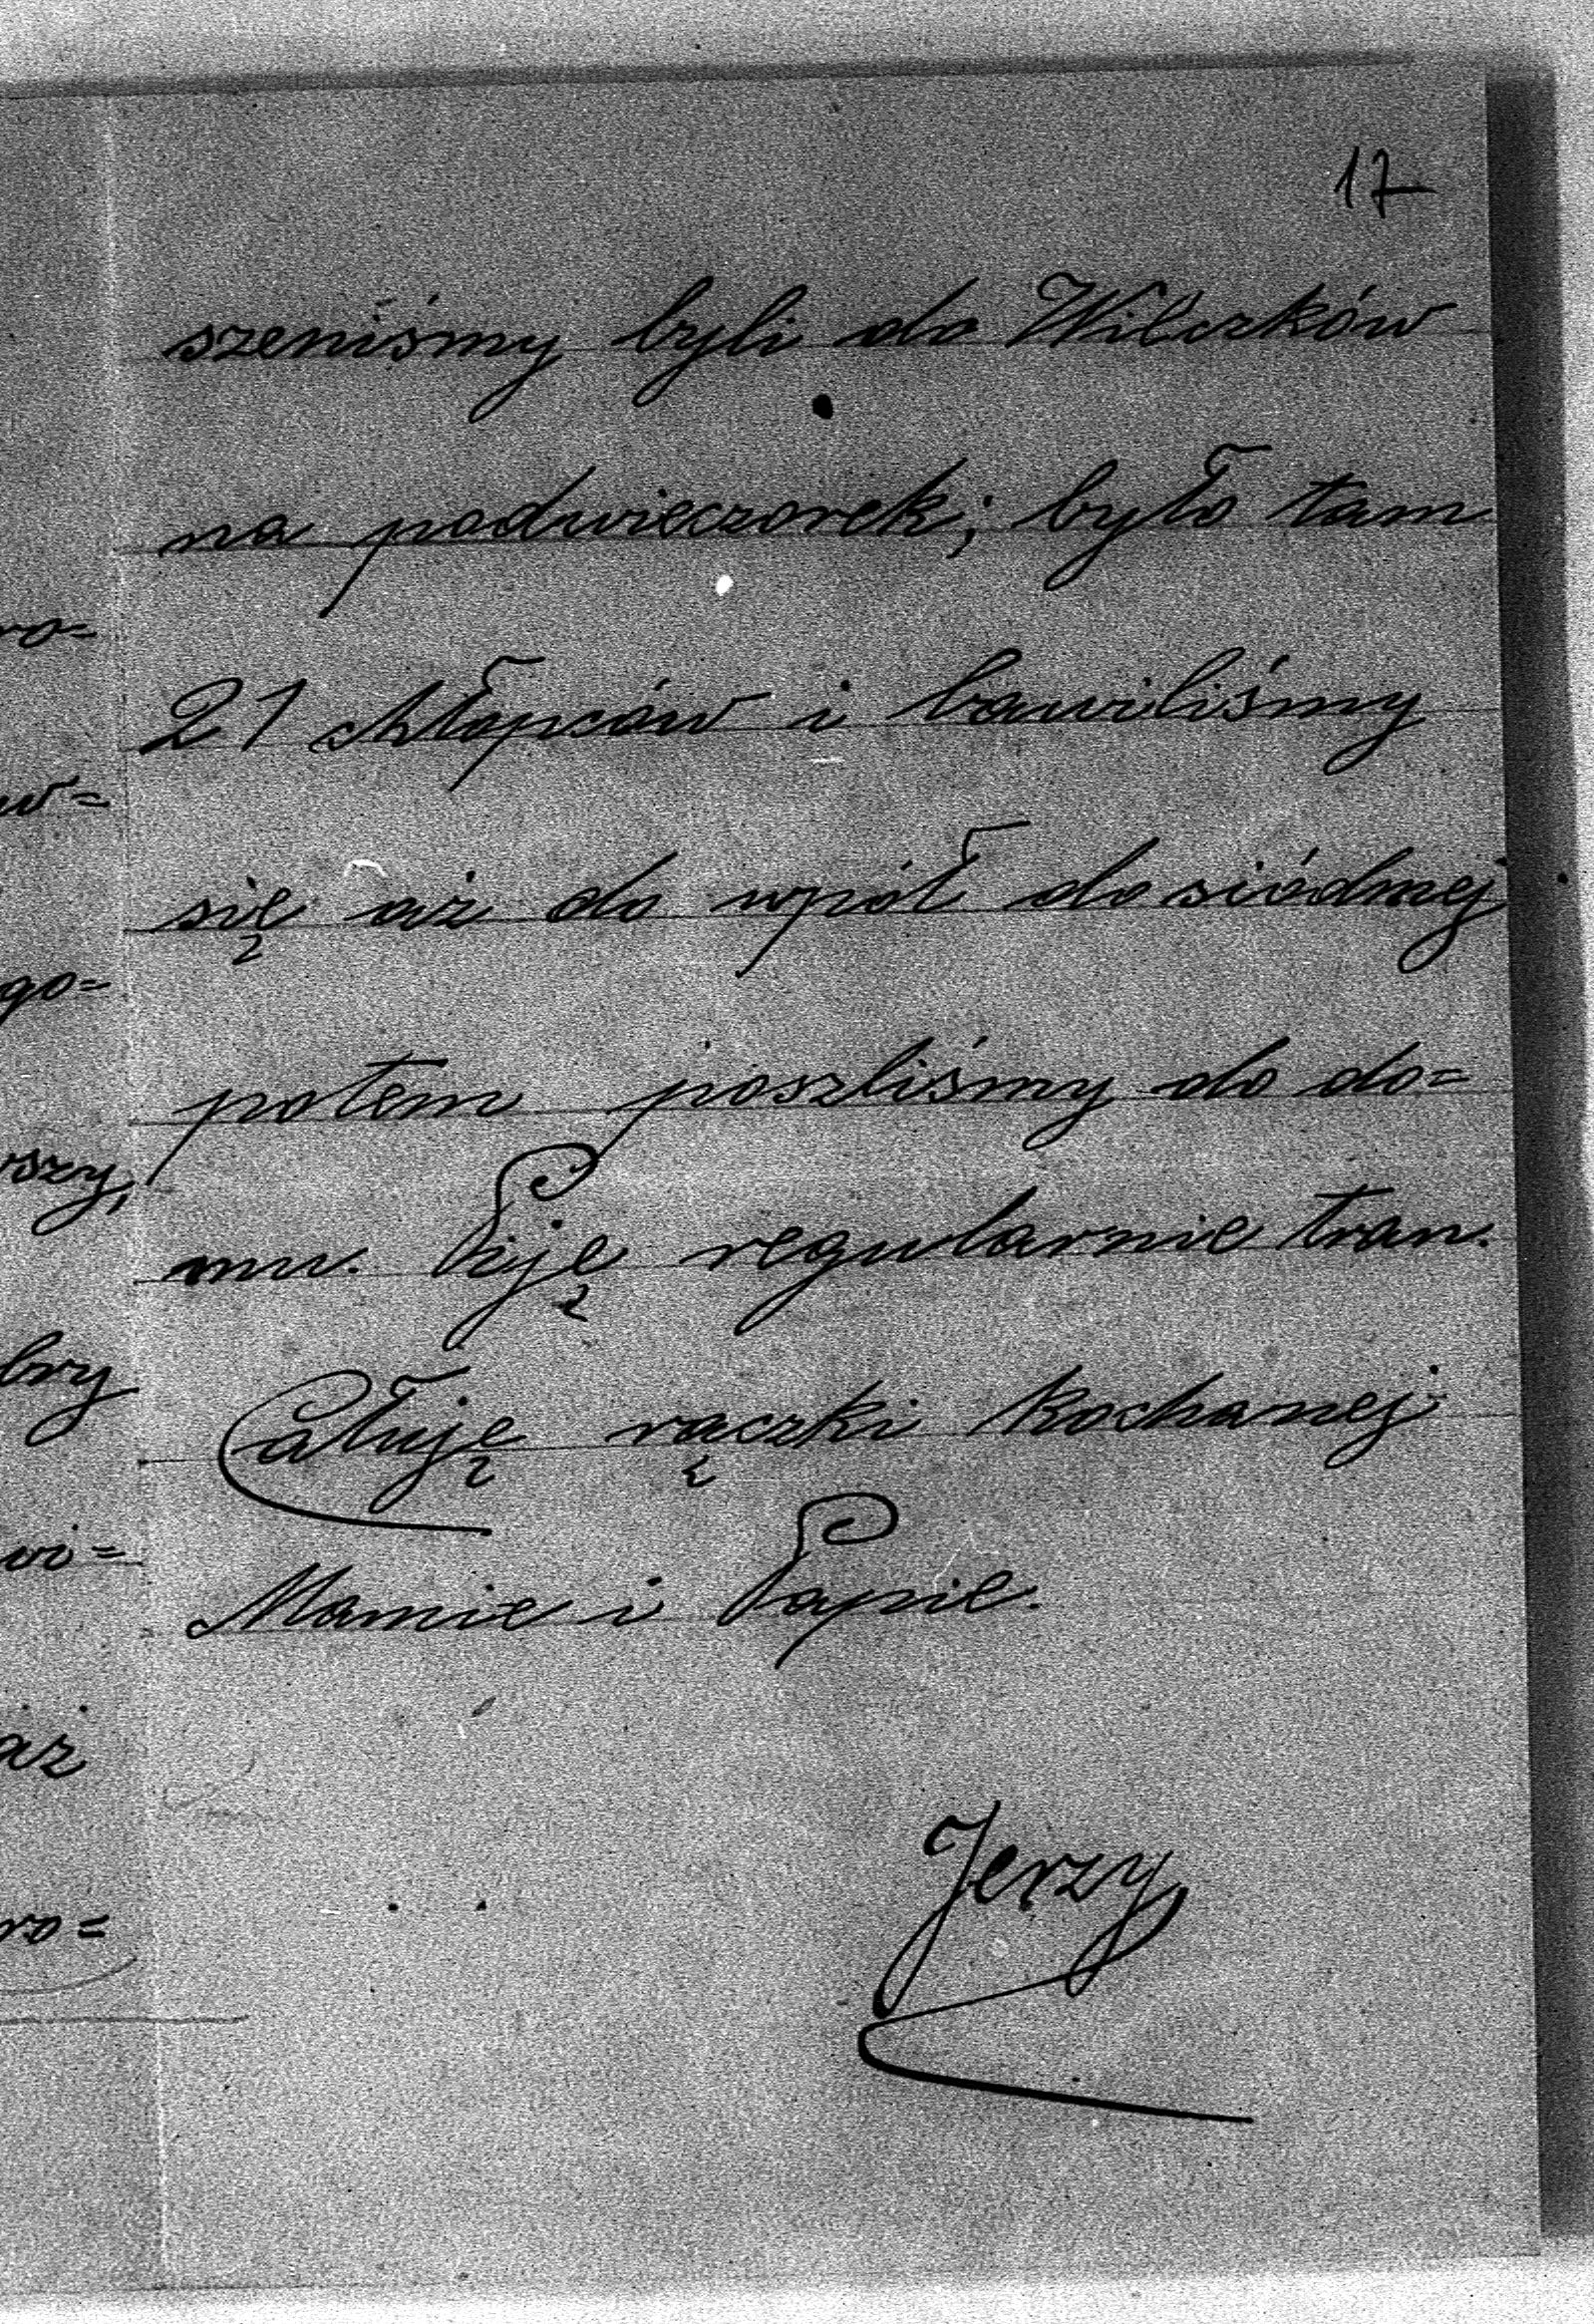 17
szeniśmy byli do Wilczków
na podwieczorek; było tam
21 chłopców i bawiliśmy
się aż do wpół do siódmej
potem poszliśmy do do=
mu. Piję regularnie tran.
Całuję rączki kochanej
Mamie i Papie.
Jerzy
ro=
w=
go=
szy,
bry
wi=
aż
ro=